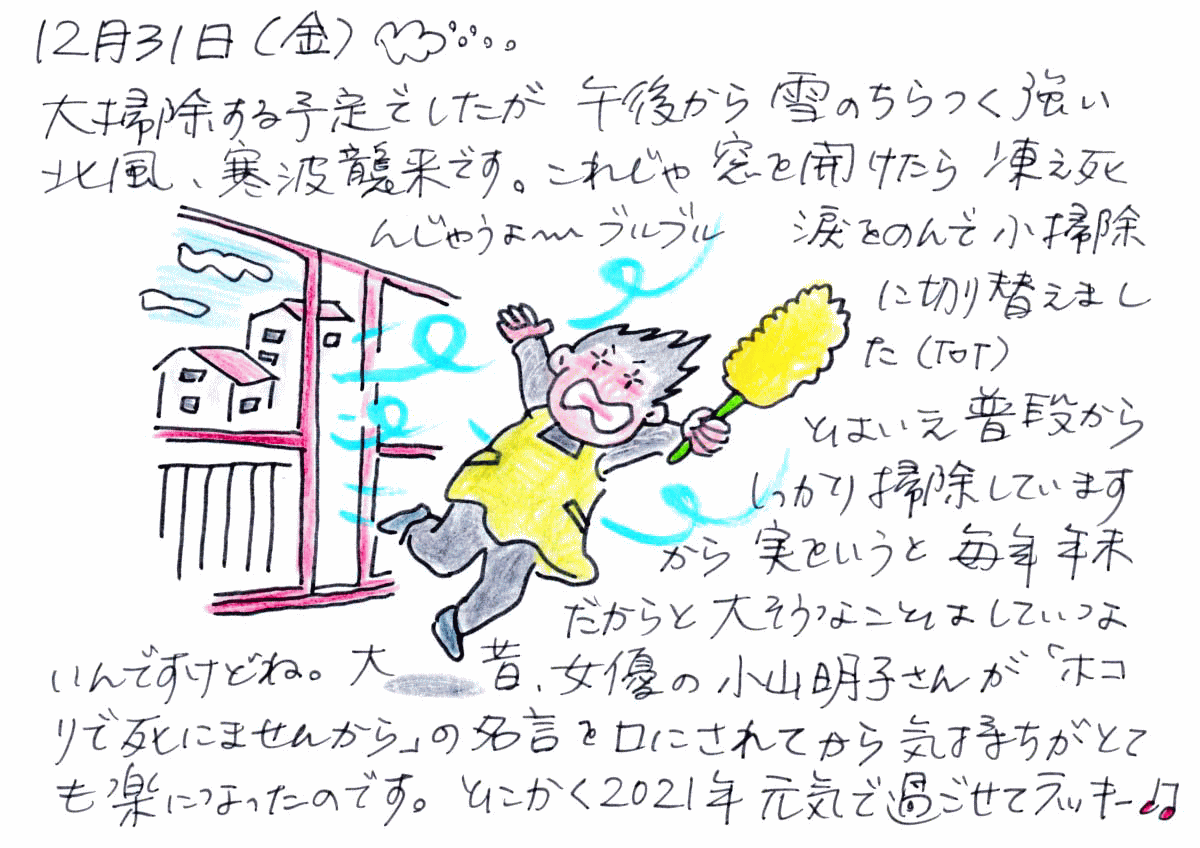 12月31日(金)
大掃除する予定でしたが 午後から 雪のちらつく強い
北風、寒波襲来です。これじゃ 窓を開けたら 凍え死
んじゃうよ〜 ブルブル 涙をのんで小掃除
に切り替えまし
た(ToT)
とはいえ普段から
しっかり掃除しています
から 実というと 毎年 年末
だからと 大そうなことはしていな
いんですけどね。大昔、女優の小山明子さんが「ホコ
リで死にませんから」の名言を口にされてから気持ちがとて
も楽になったのです。とにかく2021年 元気で過ごせてラッキー♫